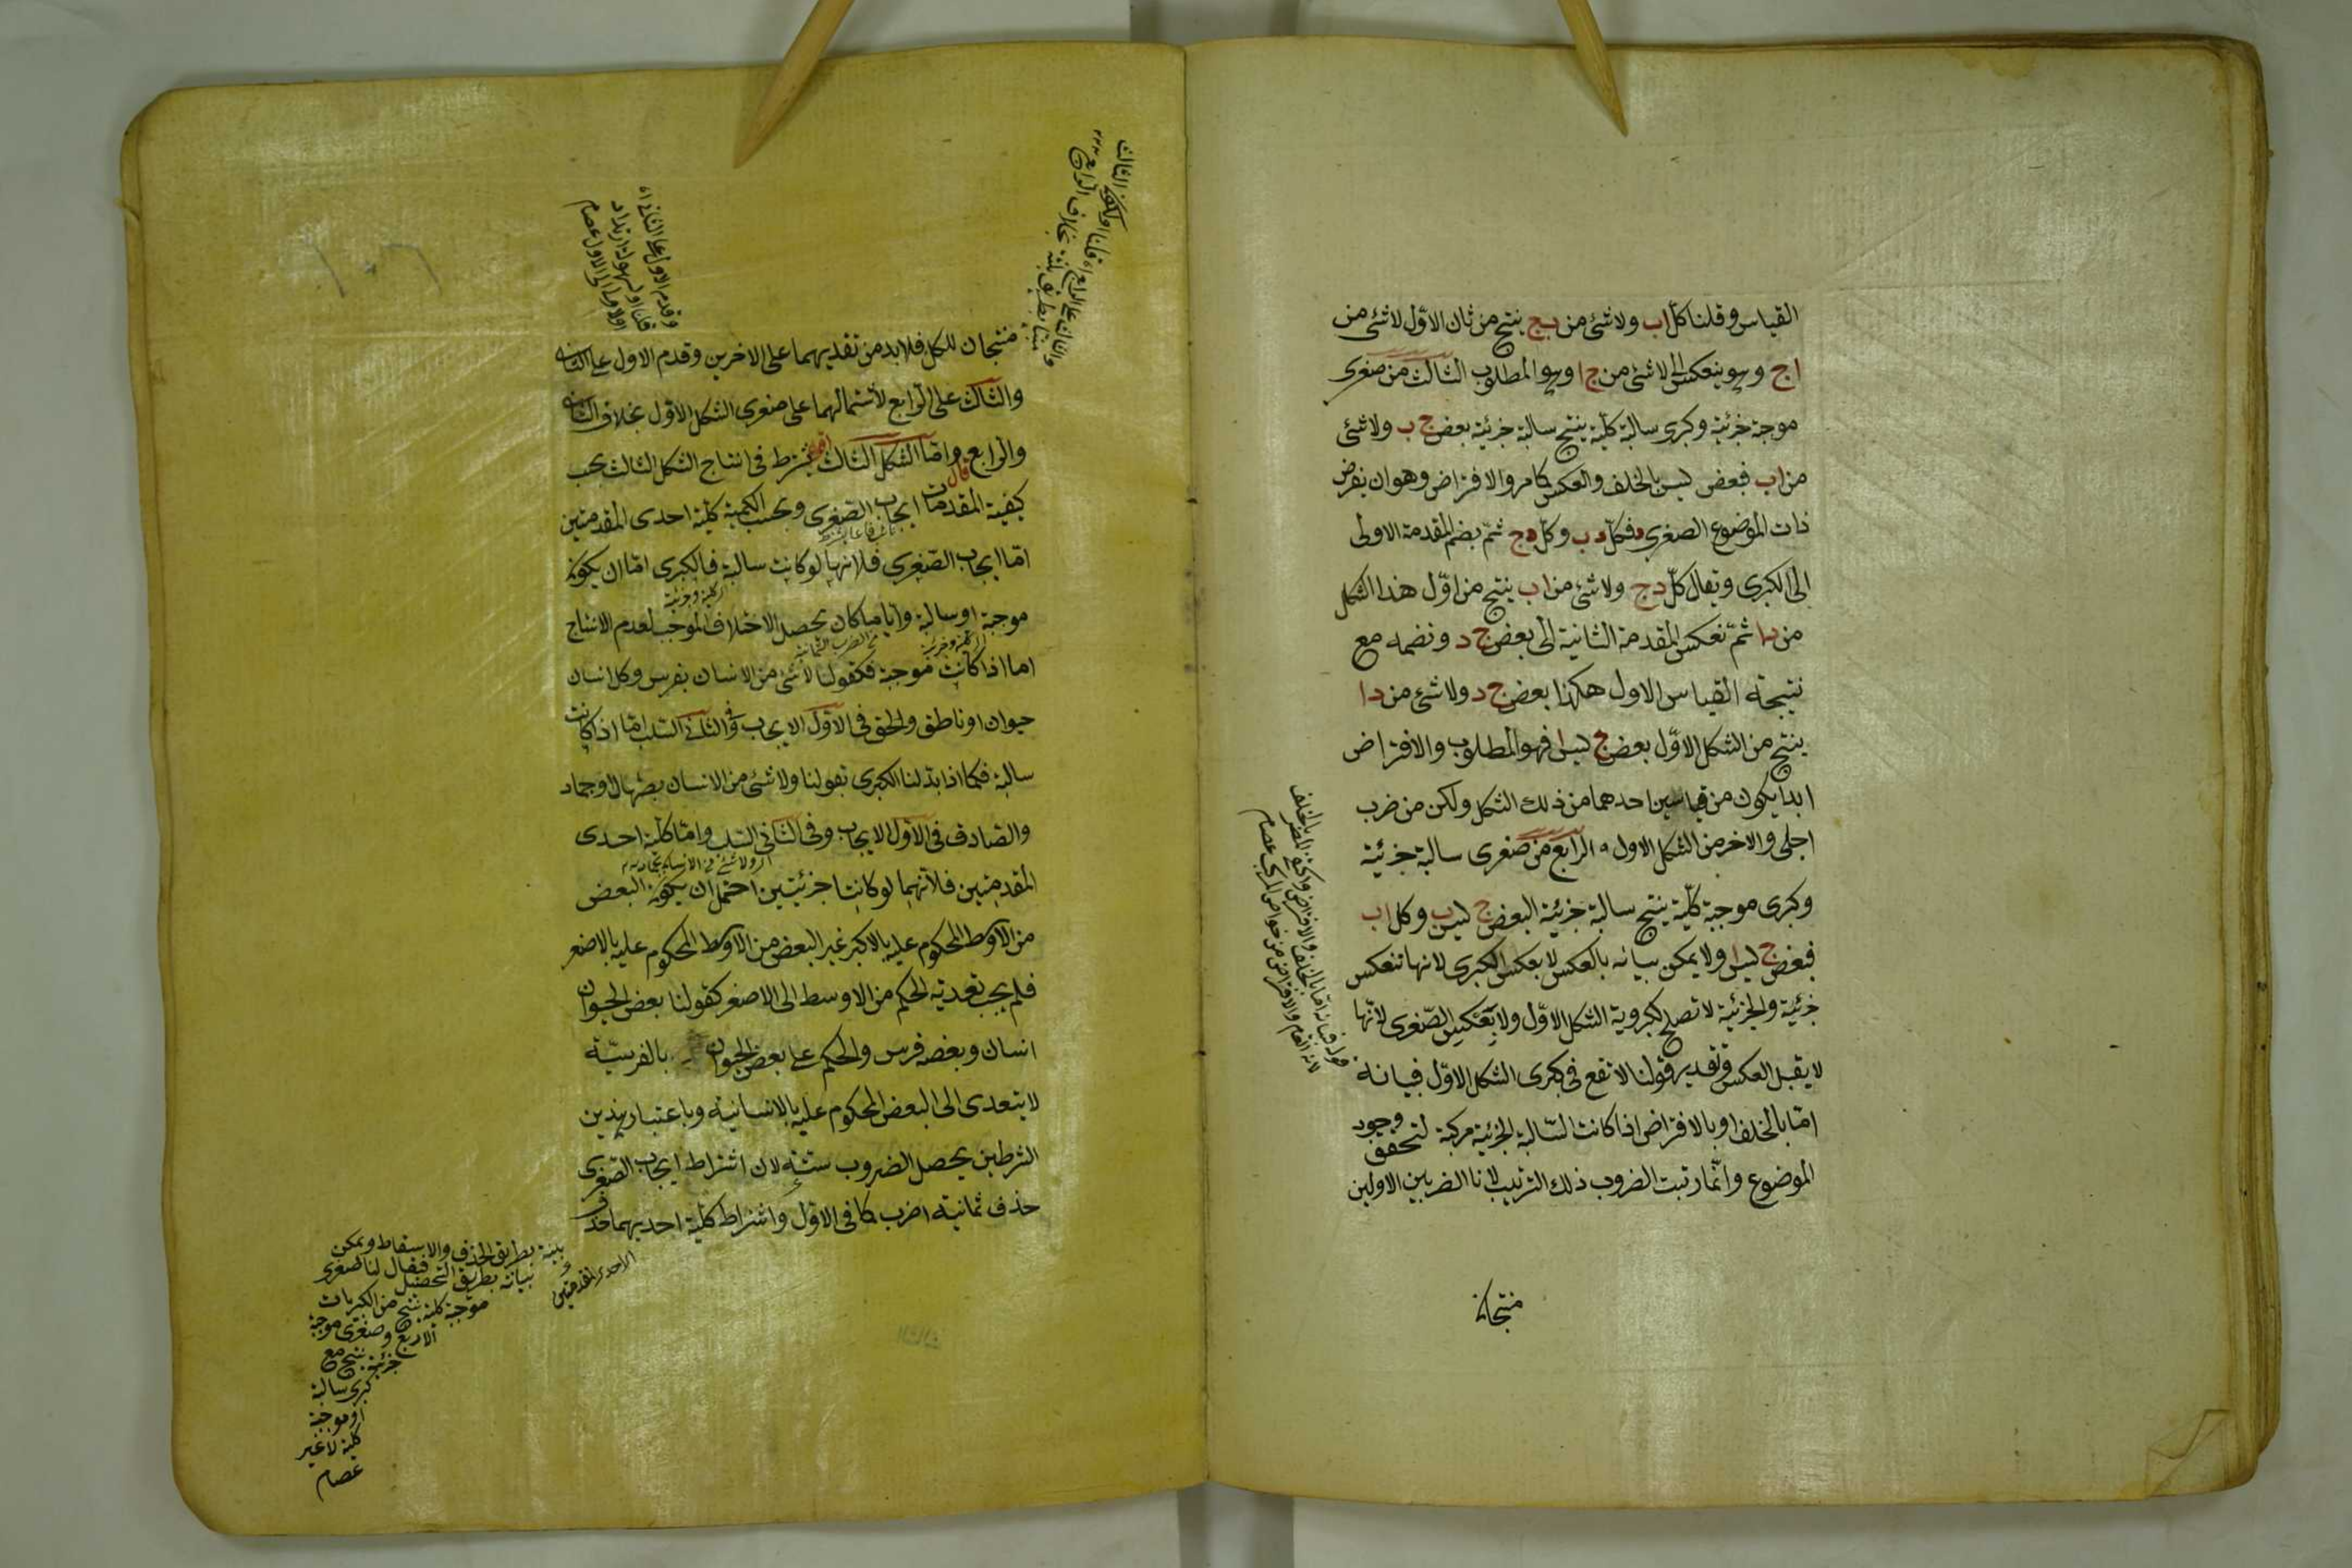 القياس وقلنا كل اب ولا شئ من بج ينتج من ثان الاول لا شئ من
اج وهو ينعكس الى لا شئ من ج ا وهو المطلوب الثالث من صغرى
موجبة جزئية وكبرى سالبة كلية ينتج سالبة جزئية بعض ج ب ولا شئ
من اب فبعض ليس بالخلف والعكس كما مر والافتراض وهو ان يفرض
ذات الموضوع الصغرى د فكل د ب وكل د ج ثم يضم المقدمة الاولى
الى الكبرى ويقال كل دج ولا شئ من اب ينتج من اول هذا الشكل
من دا ثم نعكس المقدمة الثانية الى بعض ج د ونضمه مع
نتيجة القياس الاول هكذا بعض ج د ولا شئ من دا
ينتج من الشكل الاول بعض ج ليس ا فهو المطلوب والافتراض
ابدا يكون من قياسين احدهما من ذلك الشكل ولكن من ضرب
اجلى والاخر من الشكل الاول الرابع من صغرى سالبة جزئية
وكبرى موجبة كلية ينتج سالبة جزئية البعض ج ليس ب وكل اب
فبعض ج ليس ا ولا يمكن بيانه بالعكس لا بعكس الكبرى لانها تنعكس
جزئية والجزئية لا تصلح لكبروية الشكل الاول ولا بعكس الصغرى لانها
لا يقبل العكس وتقدير قولنا لا تقع فى كبرى الشكل الاول فبيانه
اما بالخلف او بالافتراض اذا كانت السالبة الجزئية مركبة لتحقق وجود
الموضوع وانما رتبت الضروب ذلك الترتيب لانا الضربين الاولين
منتجان
منتجان للكل فلابد من تقديهما على الاخرين وقدم الاول على الثانى
والثالث على الرابع لاشتمالهما على صغرى الشكل الاول بخلاف الثانى
والرابع قال واما الشكل الثالث اقول يشترط فى انتاج الشكل الثالث بحسب
كيفية المقدمات ايجاب الصغرى وبحسب الكمية كلية احدى المقدمتين
اما ايجاب الصغرى فلانها لو كانت سالبة فالكبرى اما ان يكون
موجبة او سالبة وايا ما كان يحصل الاختلاف الموجب لعدم الانتاج
اما اذا كانت موجبة فكقولنا لا شئ من الانسان بفرس وكل انسان
حيوان او ناطق والحق فى الاول الايجاب وفى الثانى السلب اما اذا كانت
سالبة فكما اذا بدلنا الكبرى بقولنا ولا شئ من الانسان بصهال او جماد
والصادق فى الاول الايجاب وفى الثانى السلب واما كلية احدى
المقدمتين فلانهما لو كانتا جزئيتين احتمل ان يكون البعض
من الاوسط المحكوم عليه بالاكبر غير البعض من الاوسط المحكوم عليه بالاصغر
فلم يجب تعدية الحكم من الاوسط الى الاصغر كقولنا بعض الحيوان
انسان وبعضه فرس والحكم على بعض الحيوان بالفرسية
لا يتعدى الى البعض المحكوم عليه بالانسانية وباعتبار هذين
الشرطين يحصل الضروب ستة لان اشتراط ايجاب الصغرى
حذف ثمانية اضرب كما فى الاول واشتراط كلية احديهما حذف
وقدم الاول على الثانى
بينة بطريق الحذف والاسقاط ويمكن
بيانه بطريق التحصيل فيقال لنا صغرى
موجبة كلية ينتج من الكبريات
الاربع وصغرى موجبة
جزئية ينتج مع
كبرى سالبة
او موجبة
كلية لا غير
عصام